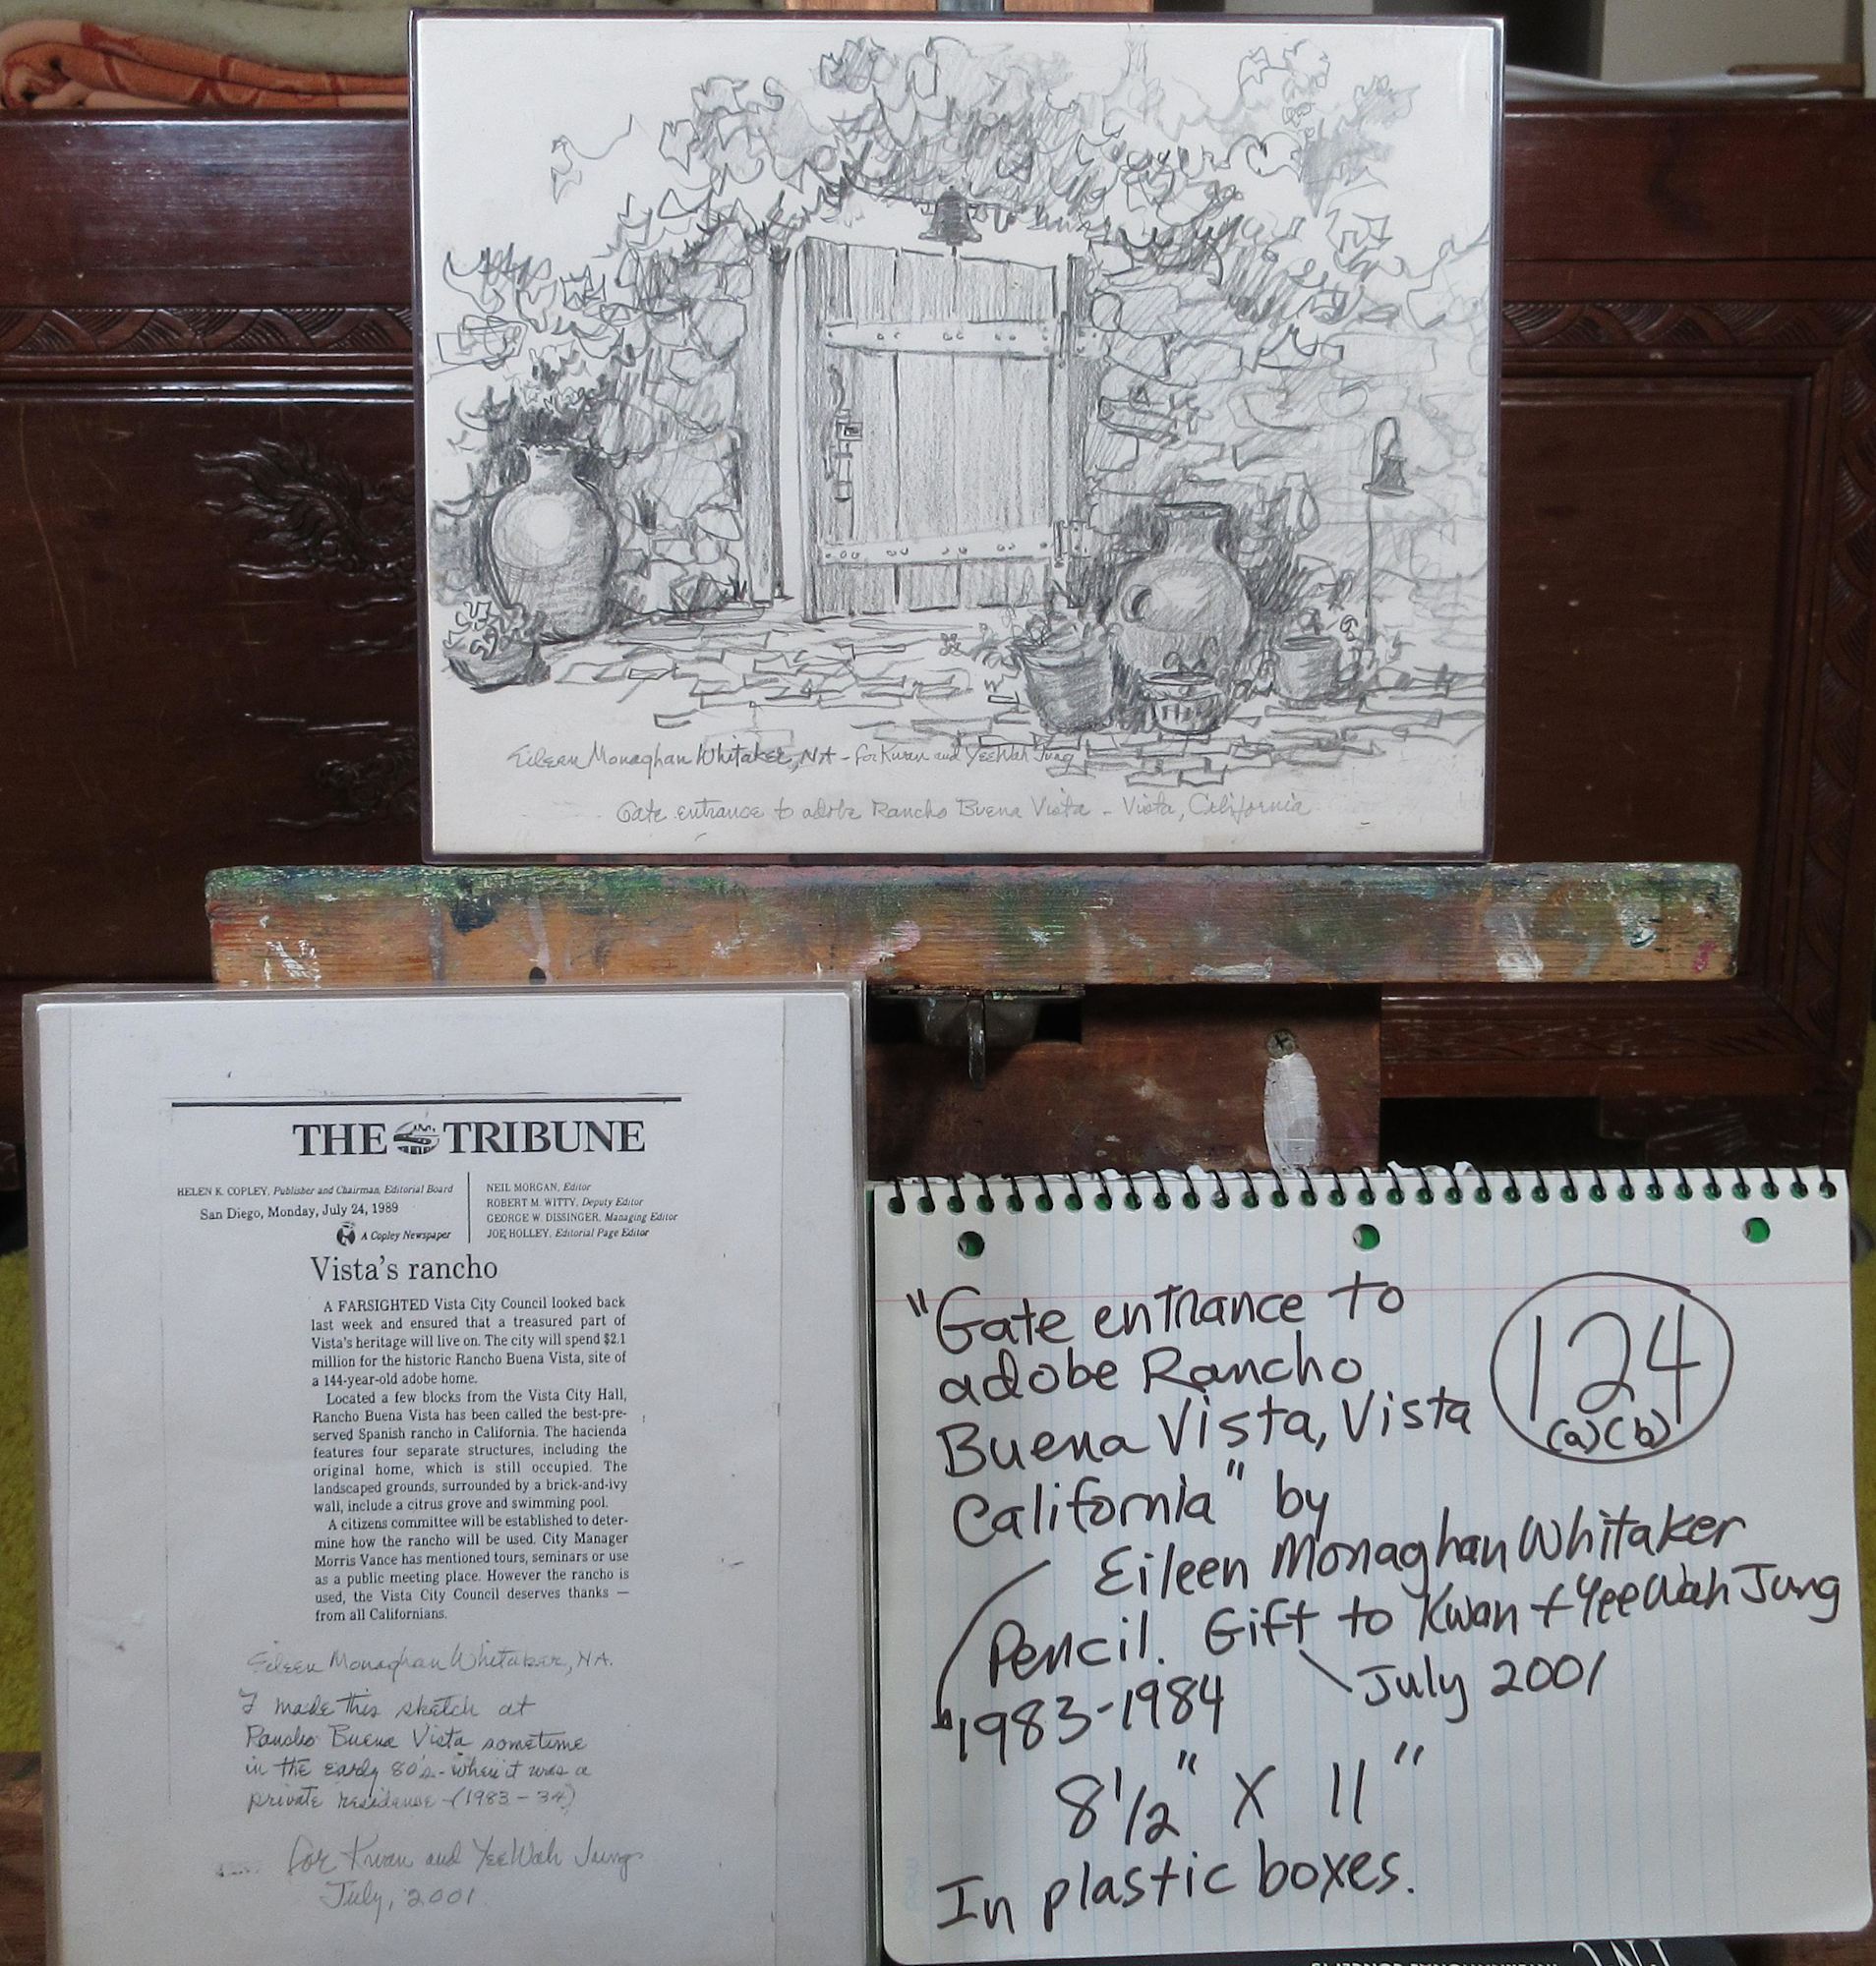 Eileen Monaghan Whitaker, NA - for Kwan and YeeWah Jung
Gate entrance to adobe Rancho Buena Vista - Vista, California
THE TRIBUNE
HELEN K. COPLEY, Publisher and Chairman, Editorial Board
San Diego, Monday, July 24, 1989
A Copley Newspaper
NEIL MORGAN, Editor
ROBERT M. WITTY, Deputy Editor
GEORGE W. DISSINGER, Managing Editor
JOE HOLLEY, Editorial Page Editor
Vista's rancho
A FARSIGHTED Vista City Council looked back
last week and ensured that a treasured part of
Vista's heritage will live on. The city will spend $2.1
million for the historic Rancho Buena Vista, site of
a 144-year-old adobe home.
Located a few blocks from the Vista City Hall,
Rancho Buena Vista has been called the best-pre-
served Spanish rancho in California. The hacienda
features four separate structures, including the
original home, which is still occupied. The
landscaped grounds, surrounded by a brick-and-ivy
wall, include a citrus grove and swimming pool.
A citizens committee will be established to deter-
mine how the rancho will be used. City Manager
Morris Vance has mentioned tours, seminars or use
as a public meeting place. However the rancho is
used, the Vista City Council deserves thanks —
from all Californians.
Eileen Monaghan Whitaker, NA.
I made this sketch at
Rancho Buena Vista sometime
in the early 80's - when it was a
private residence - (1983-84)
for Kwan and YeeWah Jung
July, 2001
"Gate entrance to
adobe Rancho
Buena Vista, Vista
California" by
124
(a)(b)
Eileen Monaghan Whitaker
Pencil. Gift to Kwan + YeeWah Jung
1983-1984
July 2001
8 1/2" X 11"
In plastic boxes.